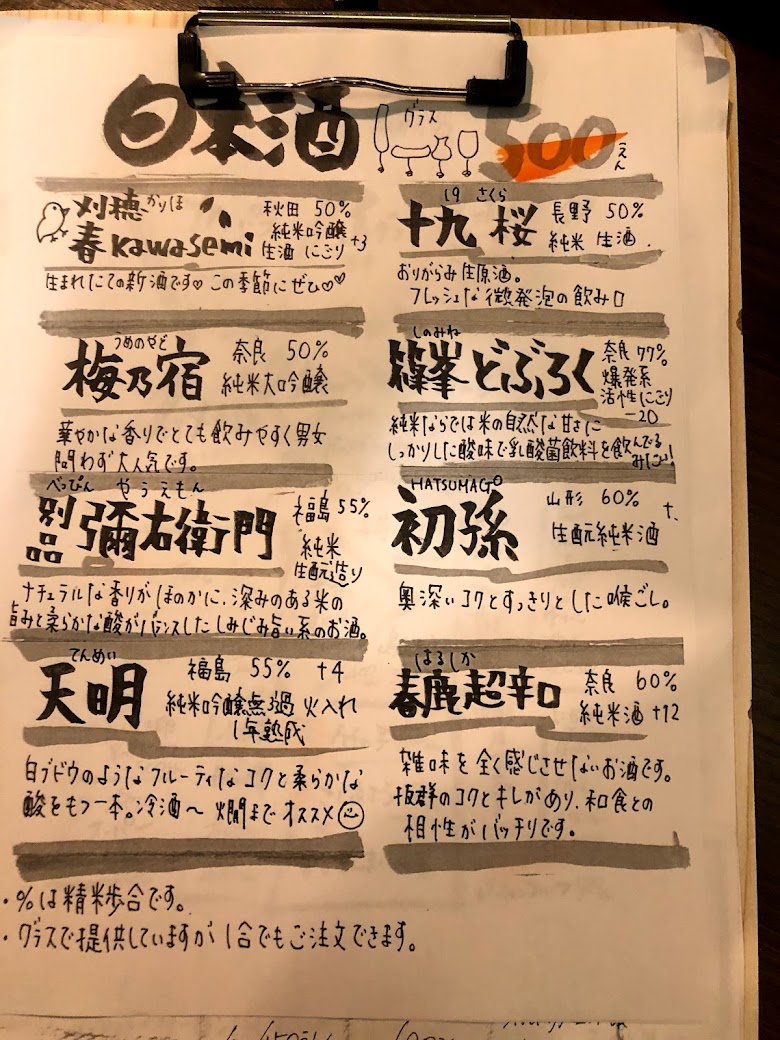 日本酒
グラス
500えん
刈穂 かりほ
春kawasemi
秋田 50%
純米吟醸
生酒 にごり +3
生まれたての新酒です♡ この季節にぜひ♡♡
19 さくら
十九 桜
長野 50%
純米 生酒.
おりがらみ生原酒。
フレッシュな微発泡の飲み口
うめのやど
梅乃宿
奈良 50%
純米大吟醸
華やかな香りでとても飲みやすく男女
問わず大人気です。
しのみね
篠峯どぶろく
奈良 77%
爆発系
活性にごり
-20
純米ならでは米の自然な甘さに
しっかりした酸味で乳酸菌飲料を飲んでる
みたい!
べっぴん やうえもん
別品 彌右衛門
福島 55%
純米
生酛造り
ナチュラルな香りがほのかに、深みのある米の
旨みと柔らかな酸がバランスしたしみじみ旨い系のお酒。
HATSUMAGO
初孫
山形 60%
生酛純米酒
奥深いコクとすっきりとした喉ごし。
てんめい
天明
福島 55% +4
純米吟醸無濾過 火入れ
1年熟成
白ブドウのようなフルーティなコクと柔らかな
酸をもつ一本。冷酒〜燗までオススメ☺
はるしか
春鹿超辛口
奈良 60%
純米酒 +12
雑味を全く感じさせないお酒です。
抜群のコクとキレがあり、和食との
相性がバッチリです。
・%は精米歩合です。
・グラスで提供していますが1合でもご注文できます。